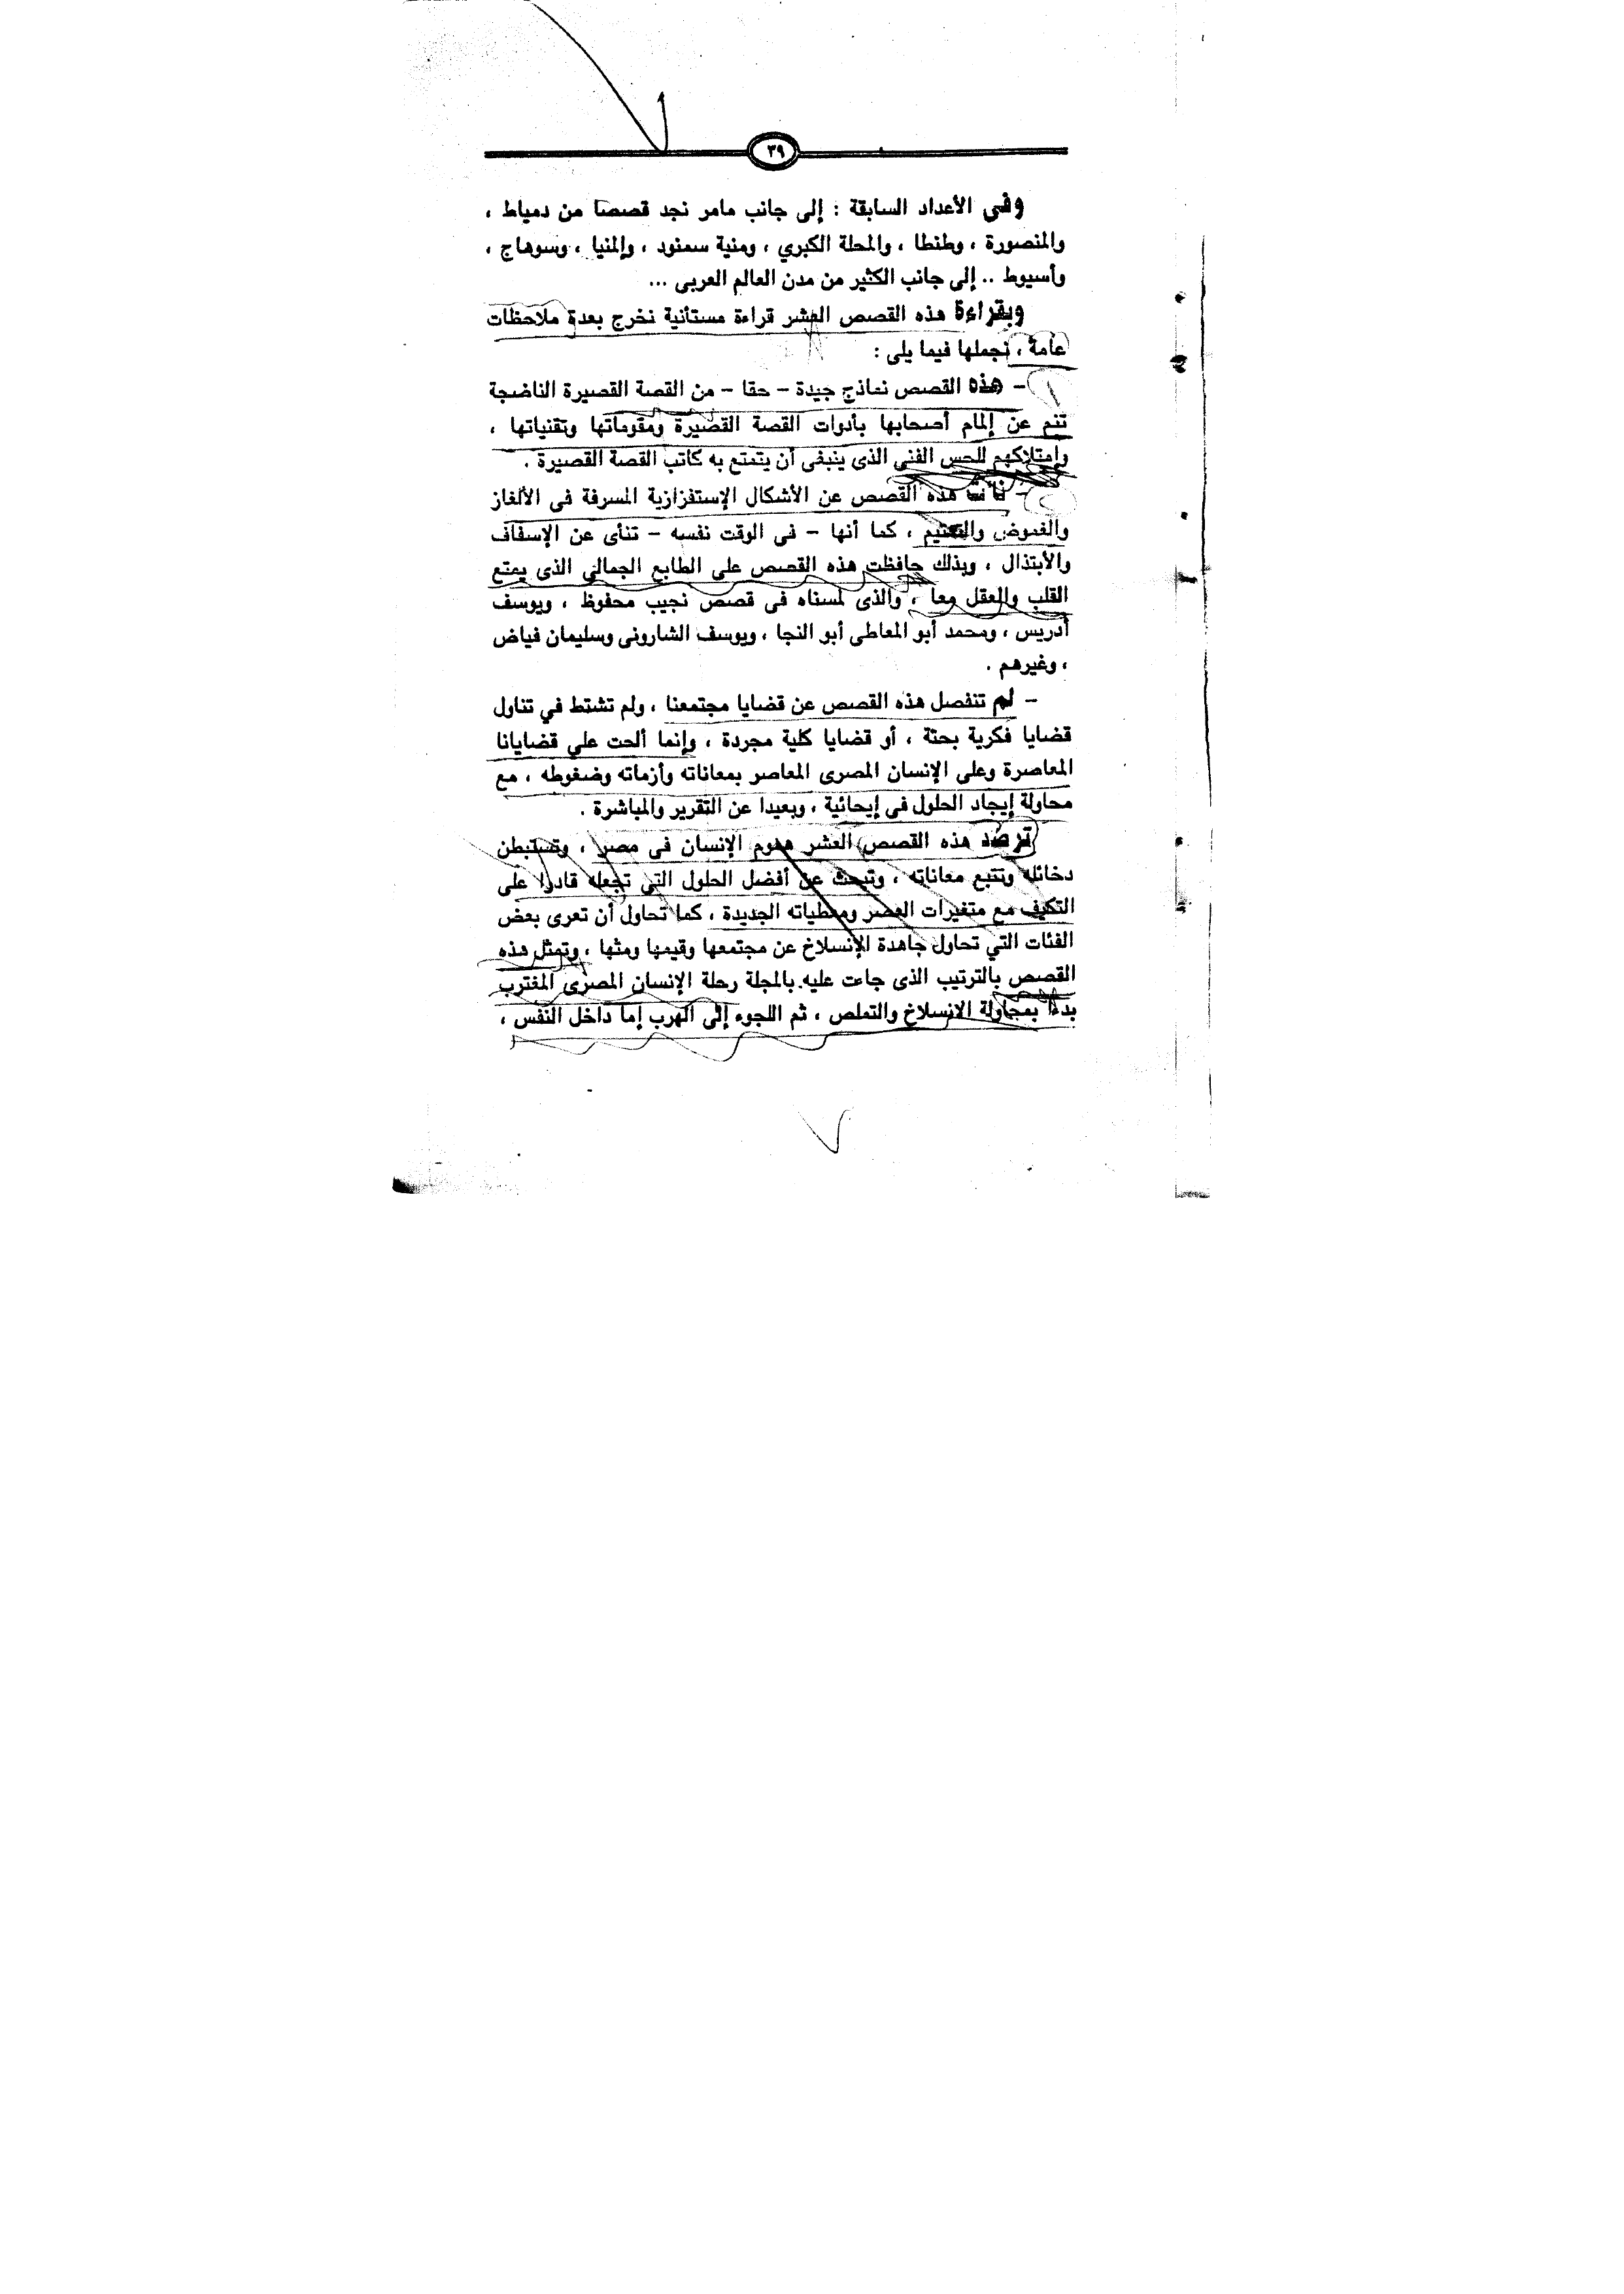 ٣٩
وفى الأعداد السابقة : إلى جانب مامر نجد قصصا من دمياط ،
والمنصورة ، وطنطا ، والمحلة الكبري ، ومنية سمنود ، والمنيا ، وسوهاج ،
وأسيوط .. إلى جانب الكثير من مدن العالم العربى ...
وبقراءة هذه القصص العشر قراءة مستأنية نخرج بعدة ملاحظات
عامة ، نجملها فيما يلى :
– هذه القصص نماذج جيدة – حقا – من القصة القصيرة الناضجة
تنم عن إلمام أصحابها بأدوات القصة القصيرة ومقوماتها وتقنياتها ،
وإمتلاكهم للحس الفنى الذى ينبغى أن يتمتع به كاتب القصة القصيرة .
– نأت هذه القصص عن الأشكال الإستفزازية المسرفة فى الألغاز
والغموض والتعتيم ، كما أنها – فى الوقت نفسه – تنأى عن الإسفاف
والأبتذال ، وبذلك حافظت هذه القصص على الطابع الجمالي الذى يمتع
القلب والعقل معا ، والذى لمسناه فى قصص نجيب محفوظ ، ويوسف
أدريس ، ومحمد أبو المعاطى أبو النجا ، ويوسف الشارونى وسليمان فياض
، وغيرهم .
– لم تنفصل هذه القصص عن قضايا مجتمعنا ، ولم تشتط في تناول
قضايا فكرية بحتة ، أو قضايا كلية مجردة ، وإنما ألحت علي قضايانا
المعاصرة وعلى الإنسان المصرى المعاصر بمعاناته وأزماته وضغوطه ، مع
محاولة إيجاد الحلول فى إيحائية ، وبعيدا عن التقرير والمباشرة .
ترصد هذه القصص العشر هموم الإنسان فى مصر ، وتستبطن
دخائله وتتبع معاناته ، وتبحث عن أفضل الحلول التي تجعله قادرا على
التكيف مع متغيرات العصر ومعطياته الجديدة ، كما تحاول أن تعرى بعض
الفئات التي تحاول جاهدة الإنسلاخ عن مجتمعها وقيمها ومثها ، وتمثل هذه
القصص بالترتيب الذى جاءت عليه بالمجلة رحلة الإنسان المصرى المغترب
بدءا بمحاولة الانسلاخ والتملص ، ثم اللجوء إلى الهرب إما داخل النفس ،